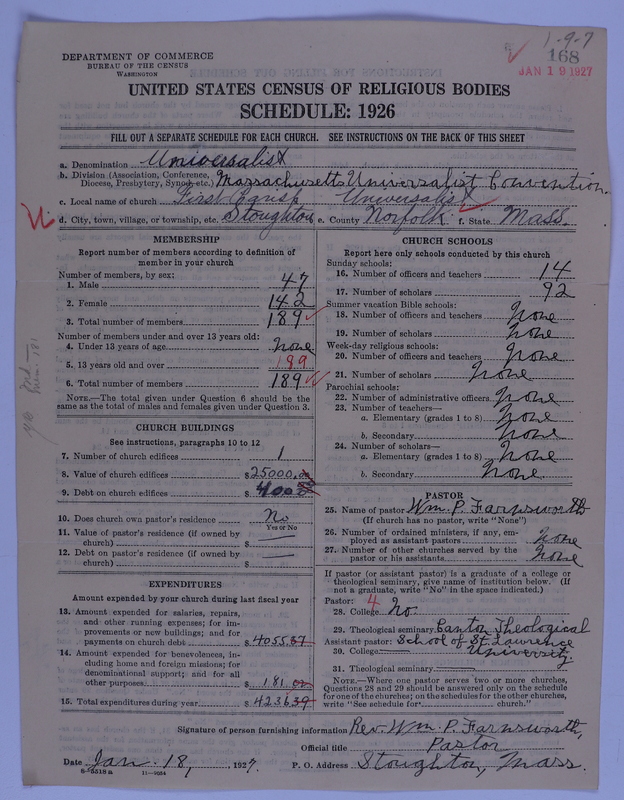 1-9-7
168
JAN 19 1927
DEPARTMENT OF COMMERCE
BUREAU OF THE CENSUS
WASHINGTON
UNITED STATES CENSUS OF RELIGIOUS BODIES
SCHEDULE: 1926
FILL OUT A SEPARATE SCHEDULE FOR EACH CHURCH. SEE INSTRUCTIONS ON THE BACK OF THIS SHEET
a. Denomination Universalist
b. Division (Association, Conference, Diocese, Presbytery, Synod, etc.) Massachusetts Universalist Convention.
c. Local name of church First Parish Universalist
d. City, town, village, or township, etc. Stoughton e. County Norfolk f. State Mass.
MEMBERSHIP
Report number of members according to definition of
member in your church
Number of members, by sex:
1. Male 47
2. Female 142
3. Total number of members 189
Number of members under and over 13 years old:
4. Under 13 years of age none
5. 13 years old and over 189
6. Total number of members 189
NOTE.—The total given under Question 6 should be the
same as the total of males and females given under Question 3.
CHURCH BUILDINGS
See instructions, paragraphs 10 to 12
7. Number of church edifices 1
8. Value of church edifices $25000.00
9. Debt on church edifices $
10. Does church own pastor's residence No
Yes or No
11. Value of pastor's residence (if owned by
church) $
12. Debt on pastor's residence (if owned by
church) $
EXPENDITURES
Amount expended by your church during last fiscal year
13. Amount expended for salaries, repairs,
and other running expenses; for im-
provements or new buildings; and for
payments on church debt $4055.37
14. Amount expended for benevolences, in-
cluding home and foreign missions; for
denominational support; and for all
other purposes $181.02
15. Total expenditures during year $4236.39
CHURCH SCHOOLS
Report here only schools conducted by this church
Sunday schools:
16. Number of officers and teachers 14
17. Number of scholars 92
Summer vacation Bible schools:
18. Number of officers and teachers None
19. Number of scholars None
Week-day religious schools:
20. Number of officers and teachers None
21. Number of scholars None
Parochial schools:
22. Number of administrative officers None
23. Number of teachers—
a. Elementary (grades 1 to 8) None
b. Secondary None
24. Number of scholars—
a. Elementary (grades 1 to 8) None
b. Secondary None
PASTOR
25. Name of pastor Wm. P. Farnsworth
(If church has no pastor, write "None")
26. Number of ordained ministers, if any, em-
ployed as assistant pastors None
27. Number of other churches served by the
pastor or his assistants None
If pastor (or assistant pastor) is a graduate of a college or
theological seminary, give name of institution below. (If
not a graduate, write "No" in the space indicated.)
Pastor: 4
28. College No.
29. Theological seminary Canton Theological
Assistant pastor: School of St. Lawrence
30. College University
31. Theological seminary
NOTE.—Where one pastor serves two or more churches,
Questions 28 and 29 should be answered only on the schedule
for one of the churches; on the schedules for the other churches,
write "See schedule for church."
Signature of person furnishing information Rev. Wm. P. Farnsworth,
Official title Pastor
Date Jan. 18, 1927. P. O. Address Stoughton, Mass.
8-5518a 11-9034